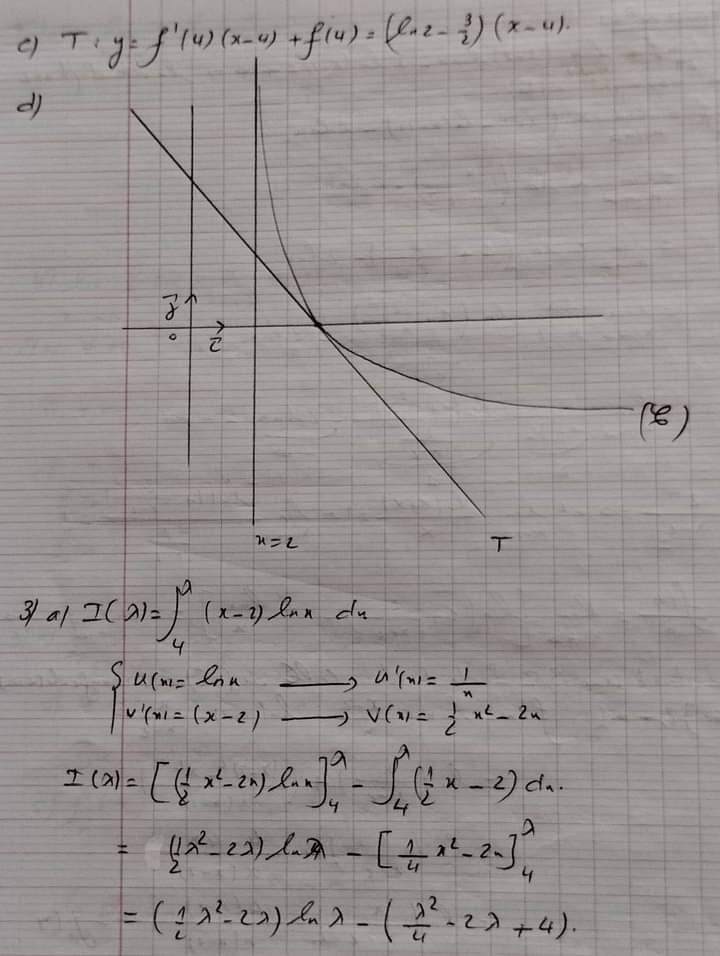 c) T : y = f'(4)(x-4) + f(4) = (ln 2 - 3/2)(x-4).
d)
j
o i
(C)
x=2
T
3) a) I(λ) = ∫_4^λ (x-2) ln x dx
{ u(x) = ln x ⟶ u'(x) = 1/x
v'(x) = (x-2) ⟶ v(x) = 1/2 x² - 2x
I(λ) = [(1/2 x² - 2x) ln x]_4^λ - ∫_4^λ (1/2 x - 2) dx.
= (1/2 λ² - 2λ) ln λ - [1/4 x² - 2x]_4^λ
= (1/2 λ² - 2λ) ln λ - (λ²/4 - 2λ + 4).